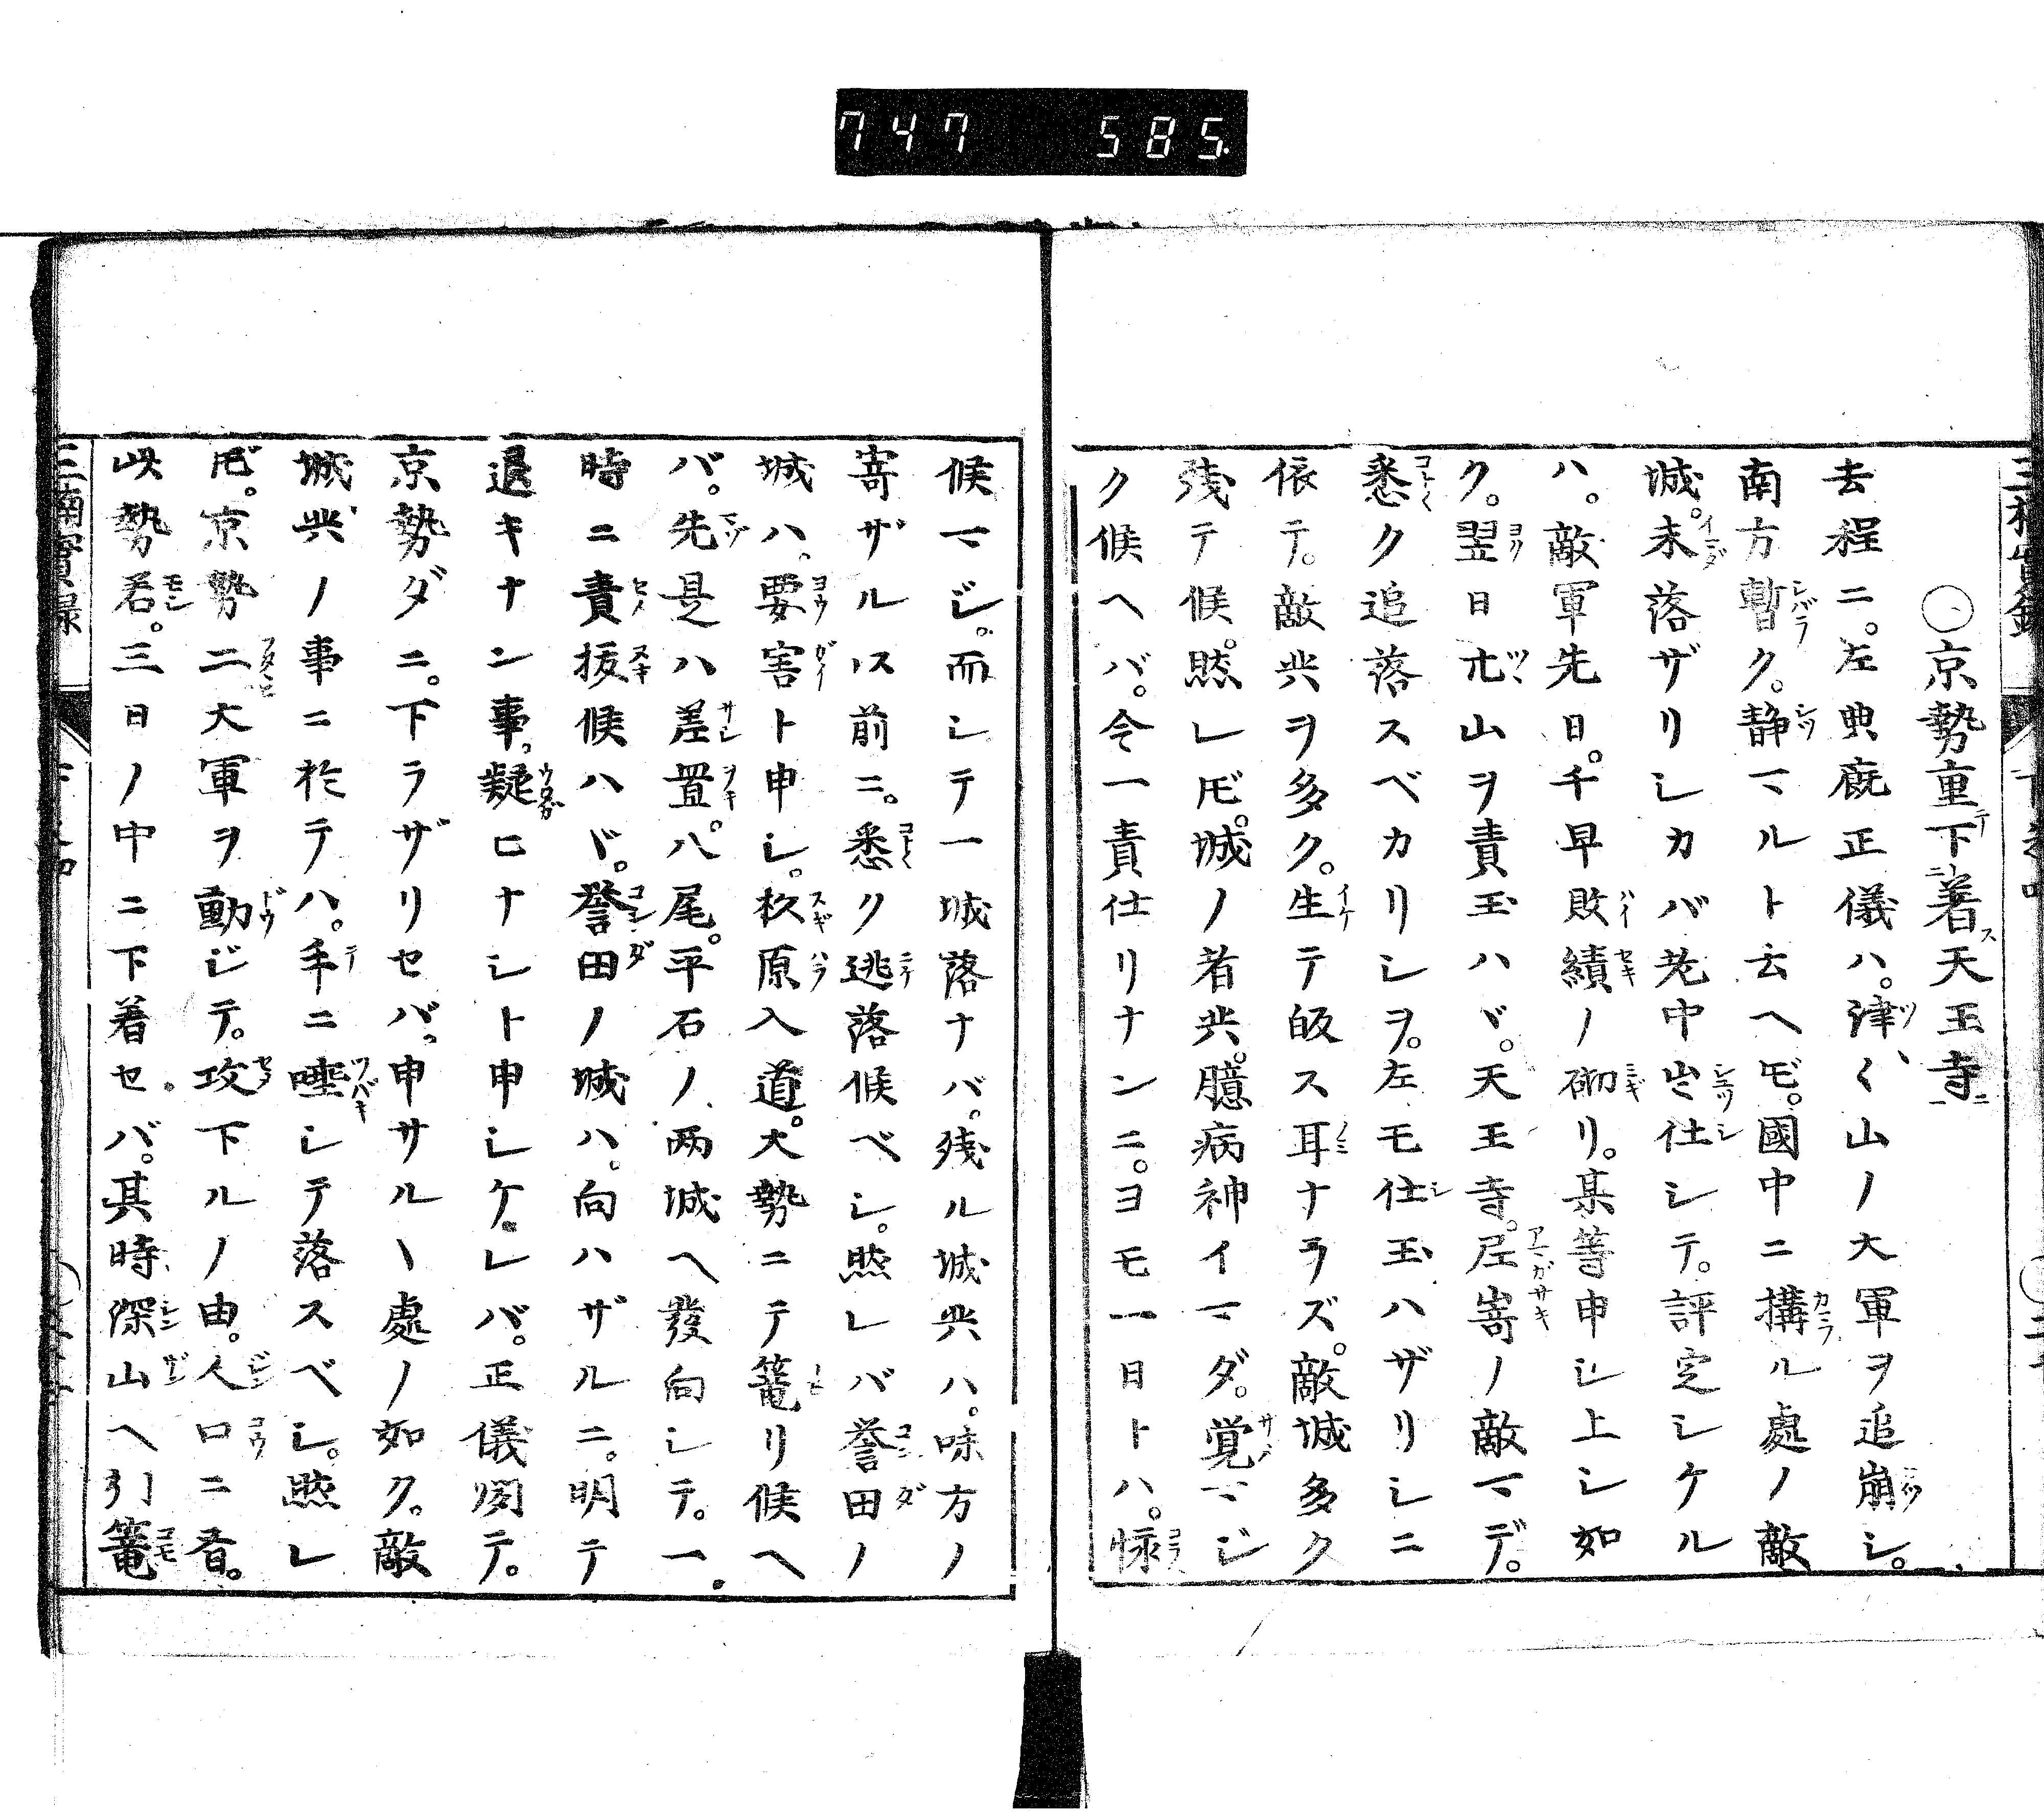 747 585
〇京勢重下着天王寺
去程ニ。左典廐正儀ハ。津々山ノ大軍ヲ追崩シ。
南方暫ク。静マルト云ヘ𪜈。國中ニ構ル處ノ敵
城。未落ザリシカバ老中出仕シテ。評定シケル
ハ。敵軍先日。千早敗績ノ砌リ。某等申シ上シ如
ク。翌日尢山ヲ責玉ハヾ。天王寺。尼嵜ノ敵マデ。
悉ク追落スベカリシヲ。左モ仕玉ハザリシニ
依テ。敵共ヲ多ク。生テ皈ス耳ナラズ。敵城多ク
残テ候。然レ𪜈。城ノ者共。臆病神イマダ。覚マジ
ク候ヘバ。今一責仕リナンニ。ヨモ一日トハ。怺
候マジ。而シテ一城落ナバ。残ル城共ハ。味方ノ
寄ザル以前ニ。悉ク逃落候ベシ。然レバ誉田ノ
城ハ。要害ト申シ。杦原入道。大勢ニテ篭リ候ヘ
バ。先是ハ差置。八尾。平石ノ両城ヘ發向シテ。一
時ニ責抜候ハヾ。誉田ノ城ハ。向ハザルニ。明テ
退キナン事。疑ヒナシト申シケレバ。正儀聞テ。
京勢ダニ。下ラザリセバ。申サルヽ處ノ如ク。敵
城共ノ事ニ於テハ。手ニ唾シテ落スベシ。然レ
𪜈。京勢二大軍ヲ動ジテ。攻下ルノ由。人口ニ有。
此勢若。三日ノ中ニ下着セバ。其時深山ヘ引篭
三楠實録